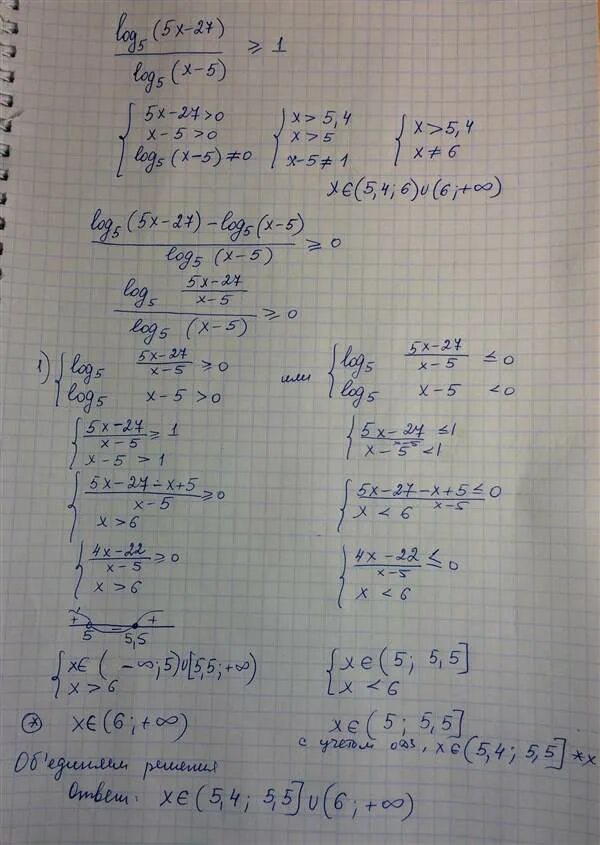 log₅(5x-27) / log₅(x-5) ≥ 1
{ 5x-27>0 { x>5,4 { x>5,4
x-5>0 x>5 x≠6
log₅(x-5)≠0 x-5≠1
x∈(5,4; 6)∪(6; +∞)
log₅(5x-27) - log₅(x-5) / log₅(x-5) ≥ 0
log₅ (5x-27)/(x-5) / log₅ (x-5) ≥ 0
1) { log₅ (5x-27)/(x-5) ≥ 0 или { log₅ (5x-27)/(x-5) ≤ 0
log₅ x-5 > 0 log₅ x-5 < 0
{ (5x-27)/(x-5) ≥ 1 { (5x-27)/(x-5) ≤ 1
x-5 > 1 x-5 < 1
{ (5x-27-x+5)/(x-5) ≥ 0 { (5x-27-x+5)/(x-5) ≤ 0
x > 6 x < 6
{ (4x-22)/(x-5) ≥ 0 { (4x-22)/(x-5) ≤ 0
x > 6 x < 6
+ - +
5 5,5
{ x∈(-∞; 5)∪[5,5; +∞) { x∈(5; 5,5]
x > 6 x < 6
* x∈(6; +∞) x∈(5; 5,5]
с учетом одз, x∈(5,4; 5,5] **
Об'единяем решения
Ответ: x∈(5,4; 5,5]∪(6; +∞)